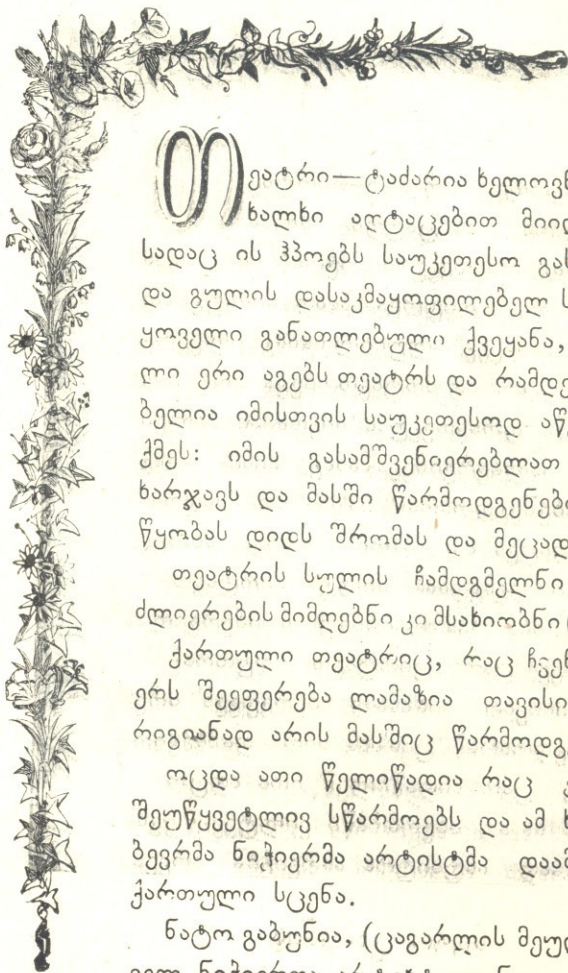 თეატრი—ტაძარია ხელოვნ
ხალხი აღტაცებით მიიღ
სადაც ის ჰპოებს საუკეთესო გას
და გულის დასაკმაყოფილებელ ს
ყოველი განათლებული ქვეყანა,
ლი ერი აგებს თეატრს და რამდე
ბელია იმისთვის საუკეთესოდ აწ
ქმეს: იმის გასამშვენიერებლათ
ხარჯავს და მასში წარმოდგენები
წყობას დიდს შრომას და მეცად
თეატრის სულის ჩამდგმელნი
ძლიერების მიმღებნი კი მსახიობნი
ქართული თეატრიც, რაც ჩვენ
ერს შეეფერება ლამაზია თავისი
რიგიანად არის მასშიც წარმოდგ
ოცდა ათი წელიწადია რაც
შეუწყვეტლივ სწარმოებს და ამ ხ
ბევრმა ნიჭიერმა არტისტმა დაამ
ქართული სცენა.
ნატო გაბუნია, (ცაგარლის მეუღ